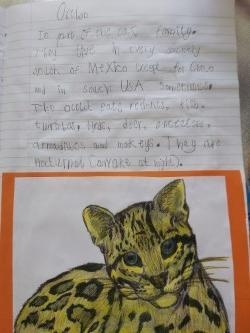 Is part of the cat family.
They live in every country
south of Mexico except for Chile
and in south USA sometimes.
The ocelot eats rodents, fish,
birds, deer,
armadillos and monkeys. They are
nocturnal (awake at night).